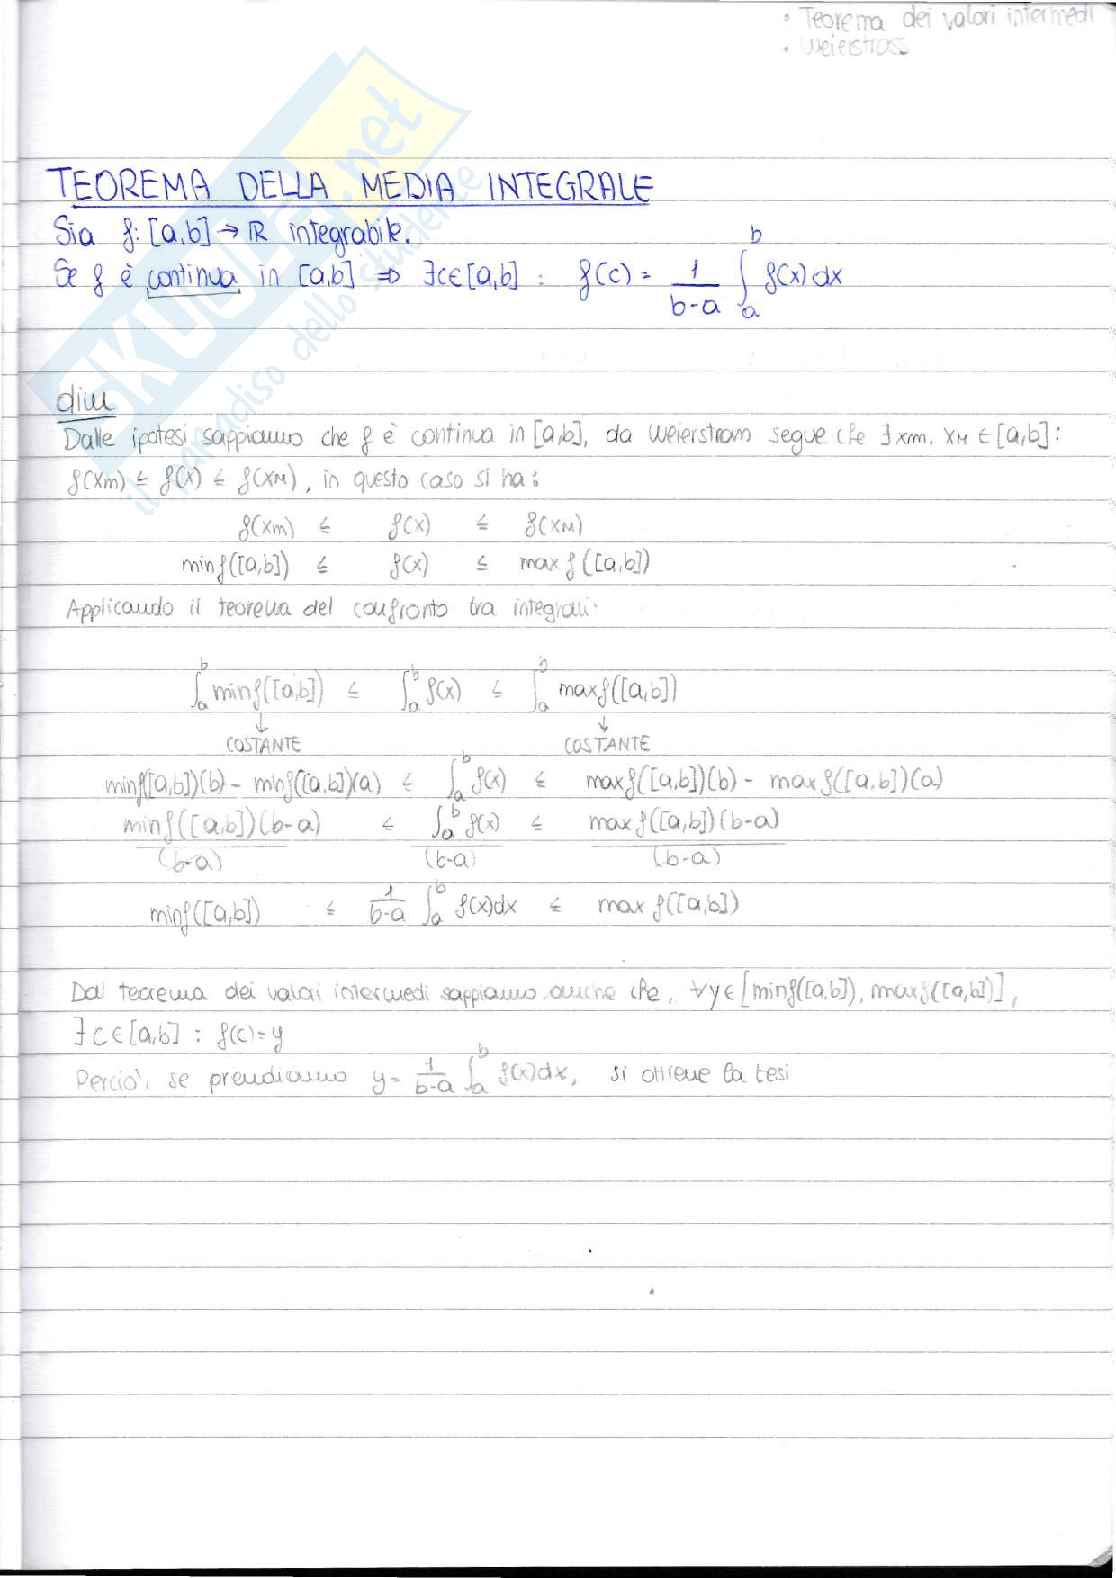 • Teorema dei valori intermedi
• Weierstrass
TEOREMA DELLA MEDIA INTEGRALE
Sia f: [a,b] → ℝ integrabile.
Se f è continua in [a,b] ⇒ ∃c∈[a,b] : f(c) = 1/(b-a) ∫_a^b f(x)dx
dim
Dalle ipotesi sappiamo che f è continua in [a,b], da Weierstrass segue che ∃ xm, xM ∈ [a,b] :
f(xm) ≤ f(x) ≤ f(xM), in questo caso si ha:
f(xm) ≤ f(x) ≤ f(xM)
minf([a,b]) ≤ f(x) ≤ max f([a,b])
Applicando il teorema del confronto tra integrali:
∫_a^b minf([a,b]) ≤ ∫_a^b f(x) ≤ ∫_a^b maxf([a,b])
↓ ↓
COSTANTE COSTANTE
minf([a,b])(b) - minf([a,b])(a) ≤ ∫_a^b f(x) ≤ maxf([a,b])(b) - maxf([a,b])(a)
minf([a,b])(b-a) ≤ ∫_a^b f(x) ≤ maxf([a,b])(b-a)
(b-a) (b-a) (b-a)
minf([a,b]) ≤ 1/(b-a) ∫_a^b f(x)dx ≤ max f([a,b])
Dal teorema dei valori intermedi sappiamo anche che, ∀y∈[minf([a,b]), maxf([a,b])],
∃ c∈[a,b] : f(c)=y
Perciò, se prendiamo y= 1/(b-a) ∫_a^b f(x)dx, si ottiene la tesi
SKUOLA.net
il paradiso dello studente